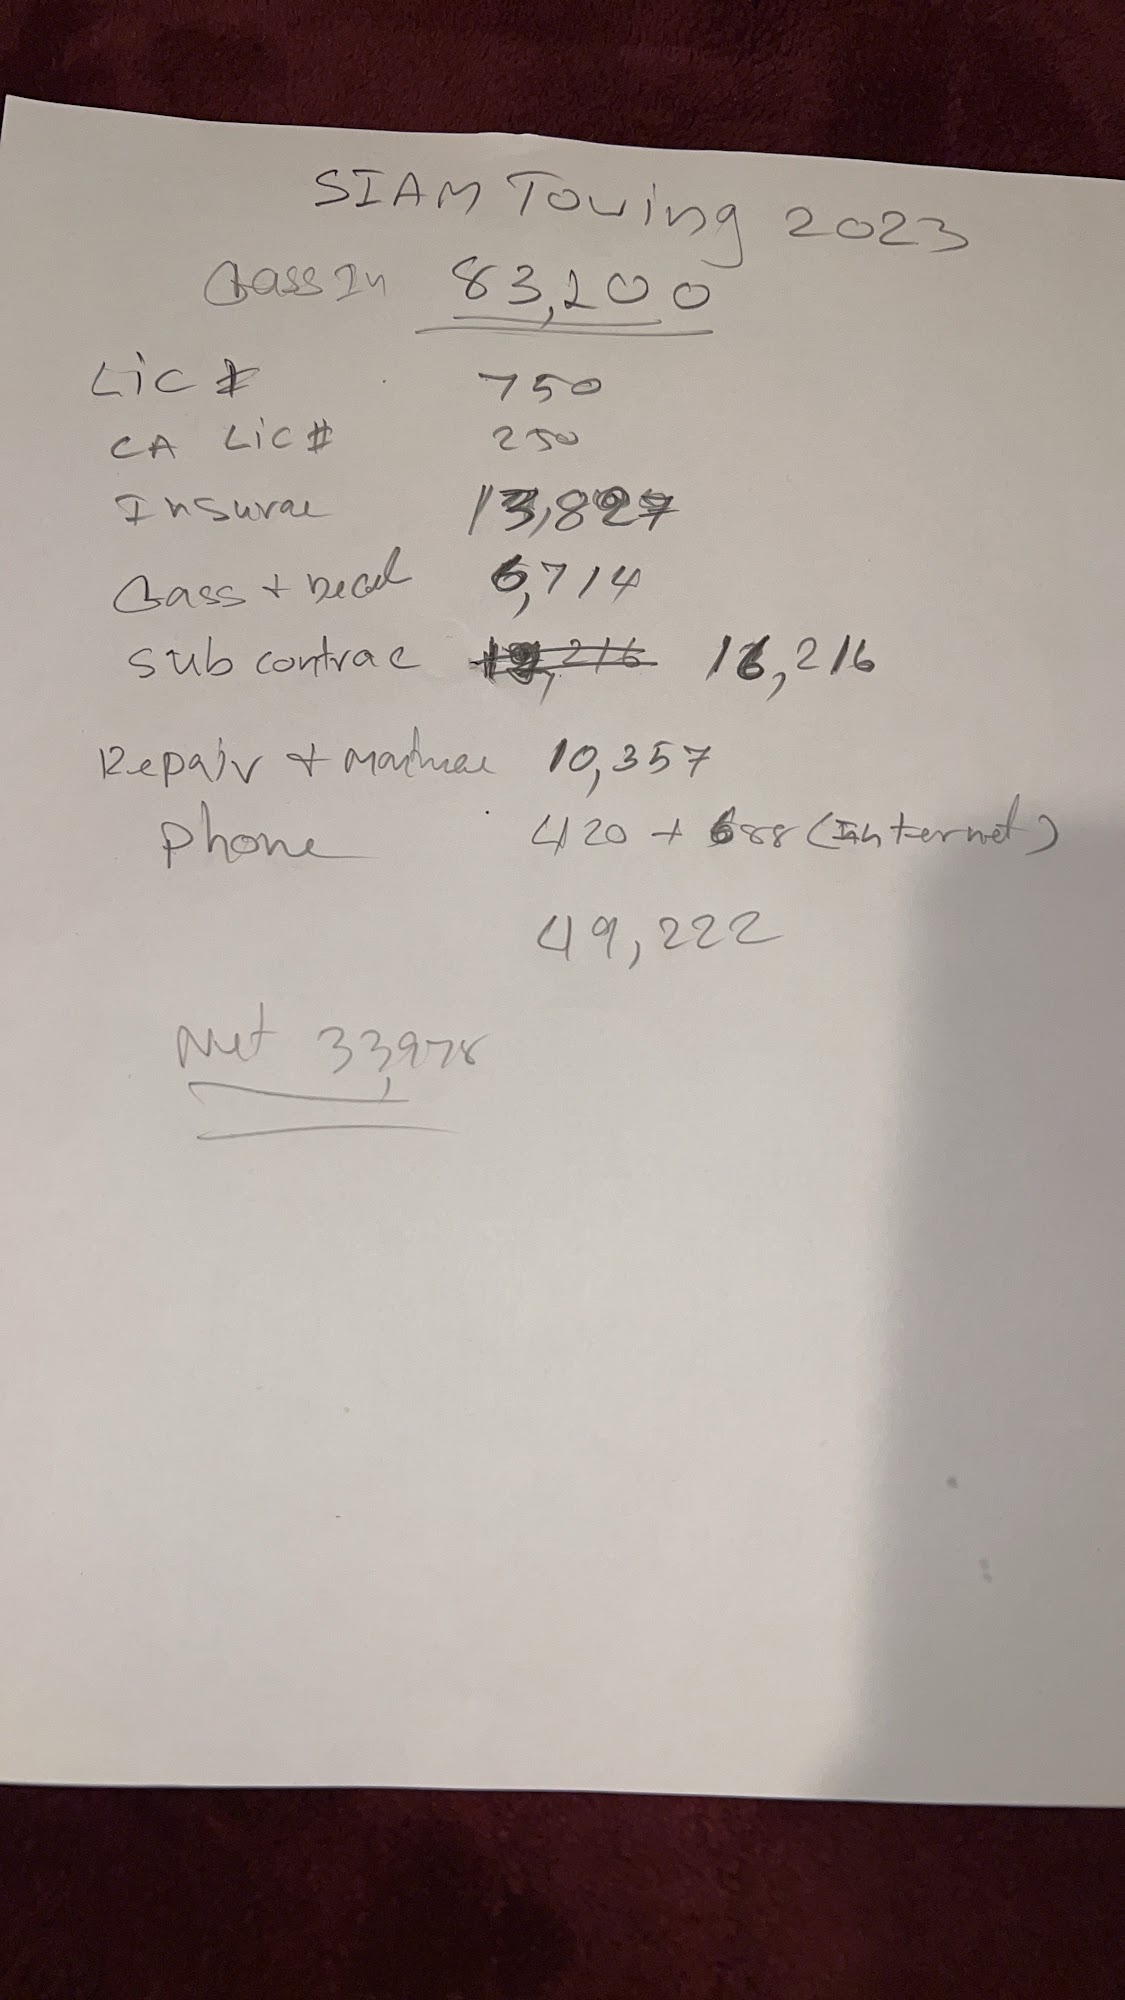 SIAM Towing 2023
Gass In 83,200
Lic # 750
CA Lic # 250
Insurae 13,827
Gass + Decel 6,714
Sub contrac 16,216
Repair + 10,357
Phone 420 + 688 (Internet)
49,222
Net 33,978